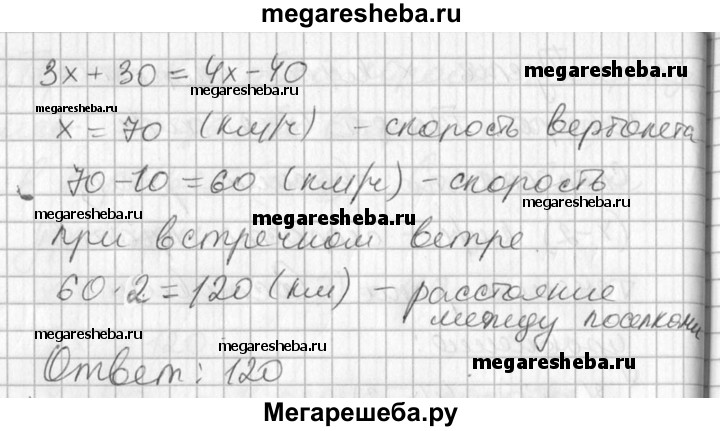 megaresheba.ru
3x + 30 = 4x - 40
megaresheba.ru
megaresheba.ru
megaresheba.ru
x = 70 (км/ч) - скорость вертолета
70 - 10 = 60 (км/ч) - скорость
megaresheba.ru
megaresheba.ru
megaresheba.ru
при встречном ветре.
60 · 2 = 120 (км) - расстояние
между поселками
megaresheba.ru
megaresheba.ru
megaresheba.ru
Ответ: 120
Мегарешеба.ру